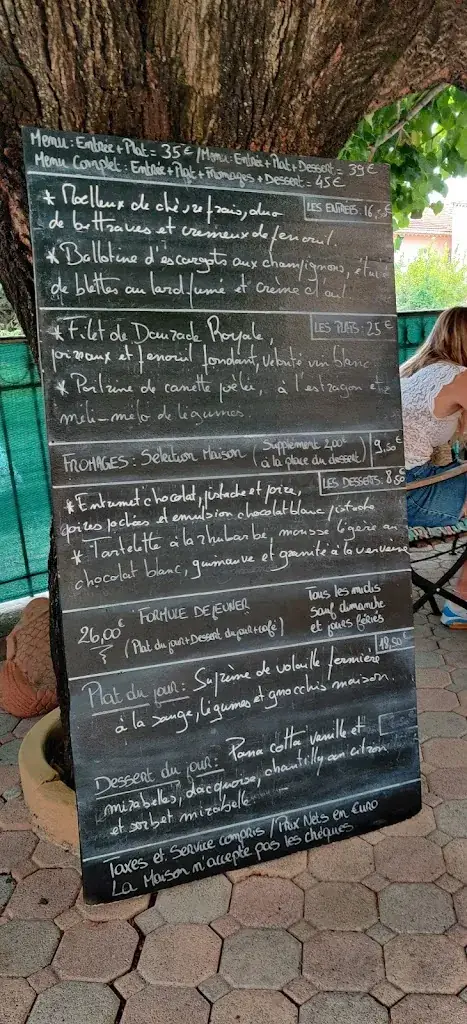 Menu: Entrée + Plat = 35€ / Menu: Entrée + Plat + Dessert = 39€
Menu Complet: Entrée + Plat + Fromages + Dessert = 45€
LES ENTREES: 16,5€
* Moelleux de chèvre frais, duo
de bettraves et cremeux de fenouil.
* Ballotine d'escargots aux champignons, étuvé
de blettes au lard fumé et crème d'ail
LES PLATS: 25€
* Filet de Daurade Royale,
poireaux et fenouil fondant, velouté vin blanc
* Poitrine de canette poêlée, à l'estragon et
méli-mélo de légumes
FROMAGES: Sélection Maison (Supplément 2,00€
à la place du dessert) 9,50€
LES DESSERTS: 8,50
* Entremet chocolat, pistache et poire,
poires pochées et emulsion chocolat blanc/pistache
* Tartelette à la rhubarbe, mousse légère au
chocolat blanc, guimauve et granité à la verveine
26,00€ FORMULE DEJEUNER
(Plat du jour + Dessert du jour + café)
Tous les midis
sauf dimanche
et jours fériés
18,50€
Plat du jour: Suprême de volaille fermière
à la sauge, légumes et gnocchis maison.
Dessert du jour: Pana cotta vanille et
mirabelles, dacquoise, chantilly au citron
et sorbet mirabelle
Taxes et Service compris / Prix Nets en €uro
La Maison n'accepte pas les chèques